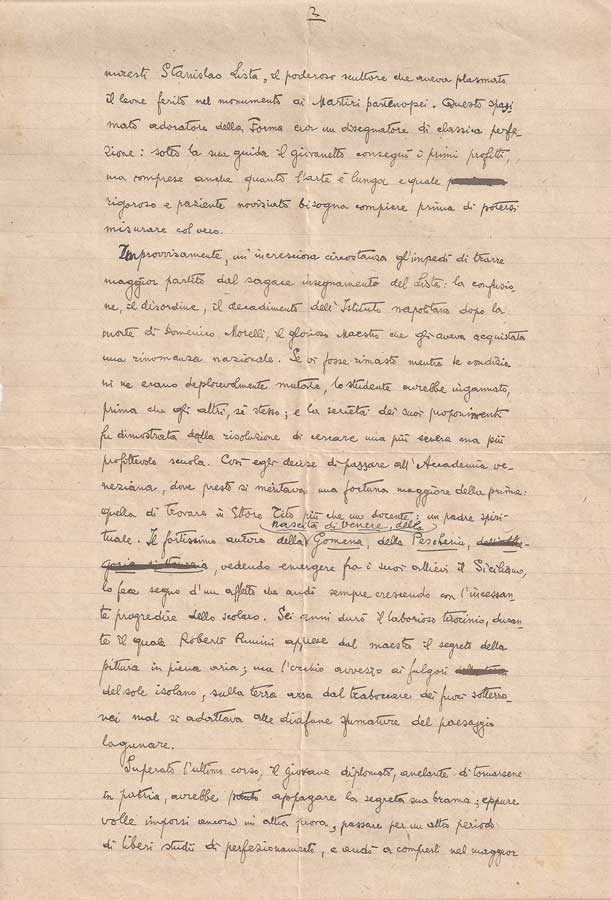 2
maestri Stanislao Lista, il poderoso scultore che aveva plasmato
il leone ferito nel monumento ai Martiri partenopei. Questo spasi-
mato adoratore della Forma era un disegnatore di classica perfe-
zione: sotto la sua guida il giovanetto conseguì i primi profitti,
ma comprese anche quanto l'arte è lunga e quale
rigoroso e paziente noviziato bisogna compiere prima di potersi
misurare col vero.
Improvvisamente, un'incresciosa circostanza gl'impedì di trarre
maggior partito dal sagace insegnamento del Lista: la confusio-
ne, il disordine, il decadimento dell'Istituto napolitano dopo la
morte di Domenico Morelli, il glorioso Maestro che gli aveva acquistata
una rinomanza nazionale. Se vi fosse rimasto mentre le condizio-
ni ne erano deplorevolmente mutate, lo studente avrebbe ingannato,
prima che gli altri, sè stesso; e la serietà dei suoi proponimenti
fu dimostrata dalla risoluzione di cercare una più severa ma più
profittevole scuola. Così egli decise di passare all'Accademia ve-
neziana, dove presto si meritava una fortuna maggiore della prima:
quella di trovare in Ettore Tito più che un docente: un padre spiri-
nascita di venere, della
tuale. Il fortissimo autore della Gomena, della Pescheria,
vedendo emergere fra i suoi allievi il Siciliano,
lo fece segno d'un affetto che andò sempre crescendo con l'incessan-
te progredire dello scolaro. Sei anni durò il laborioso tirocinio, duran-
te il quale Roberto Rimini apprese dal maestro il segreto della
pittura in piena aria; ma l'occhio avvezzo ai fulgori
del sole isolano, sulla terra arsa dal traboccare dei fuochi sotterra-
nei mal si adattava alle diafane sfumature del paesaggio
lagunare.
Superato l'ultimo corso, il giovane diplomato, anelante di tornarsene
in patria, avrebbe potuto appagare la segreta sua brama; eppure
volle imporsi ancora un'altra prova, passare per un altro periodo
di liberi studii di perfezionamento, e andò a compierli nel maggior